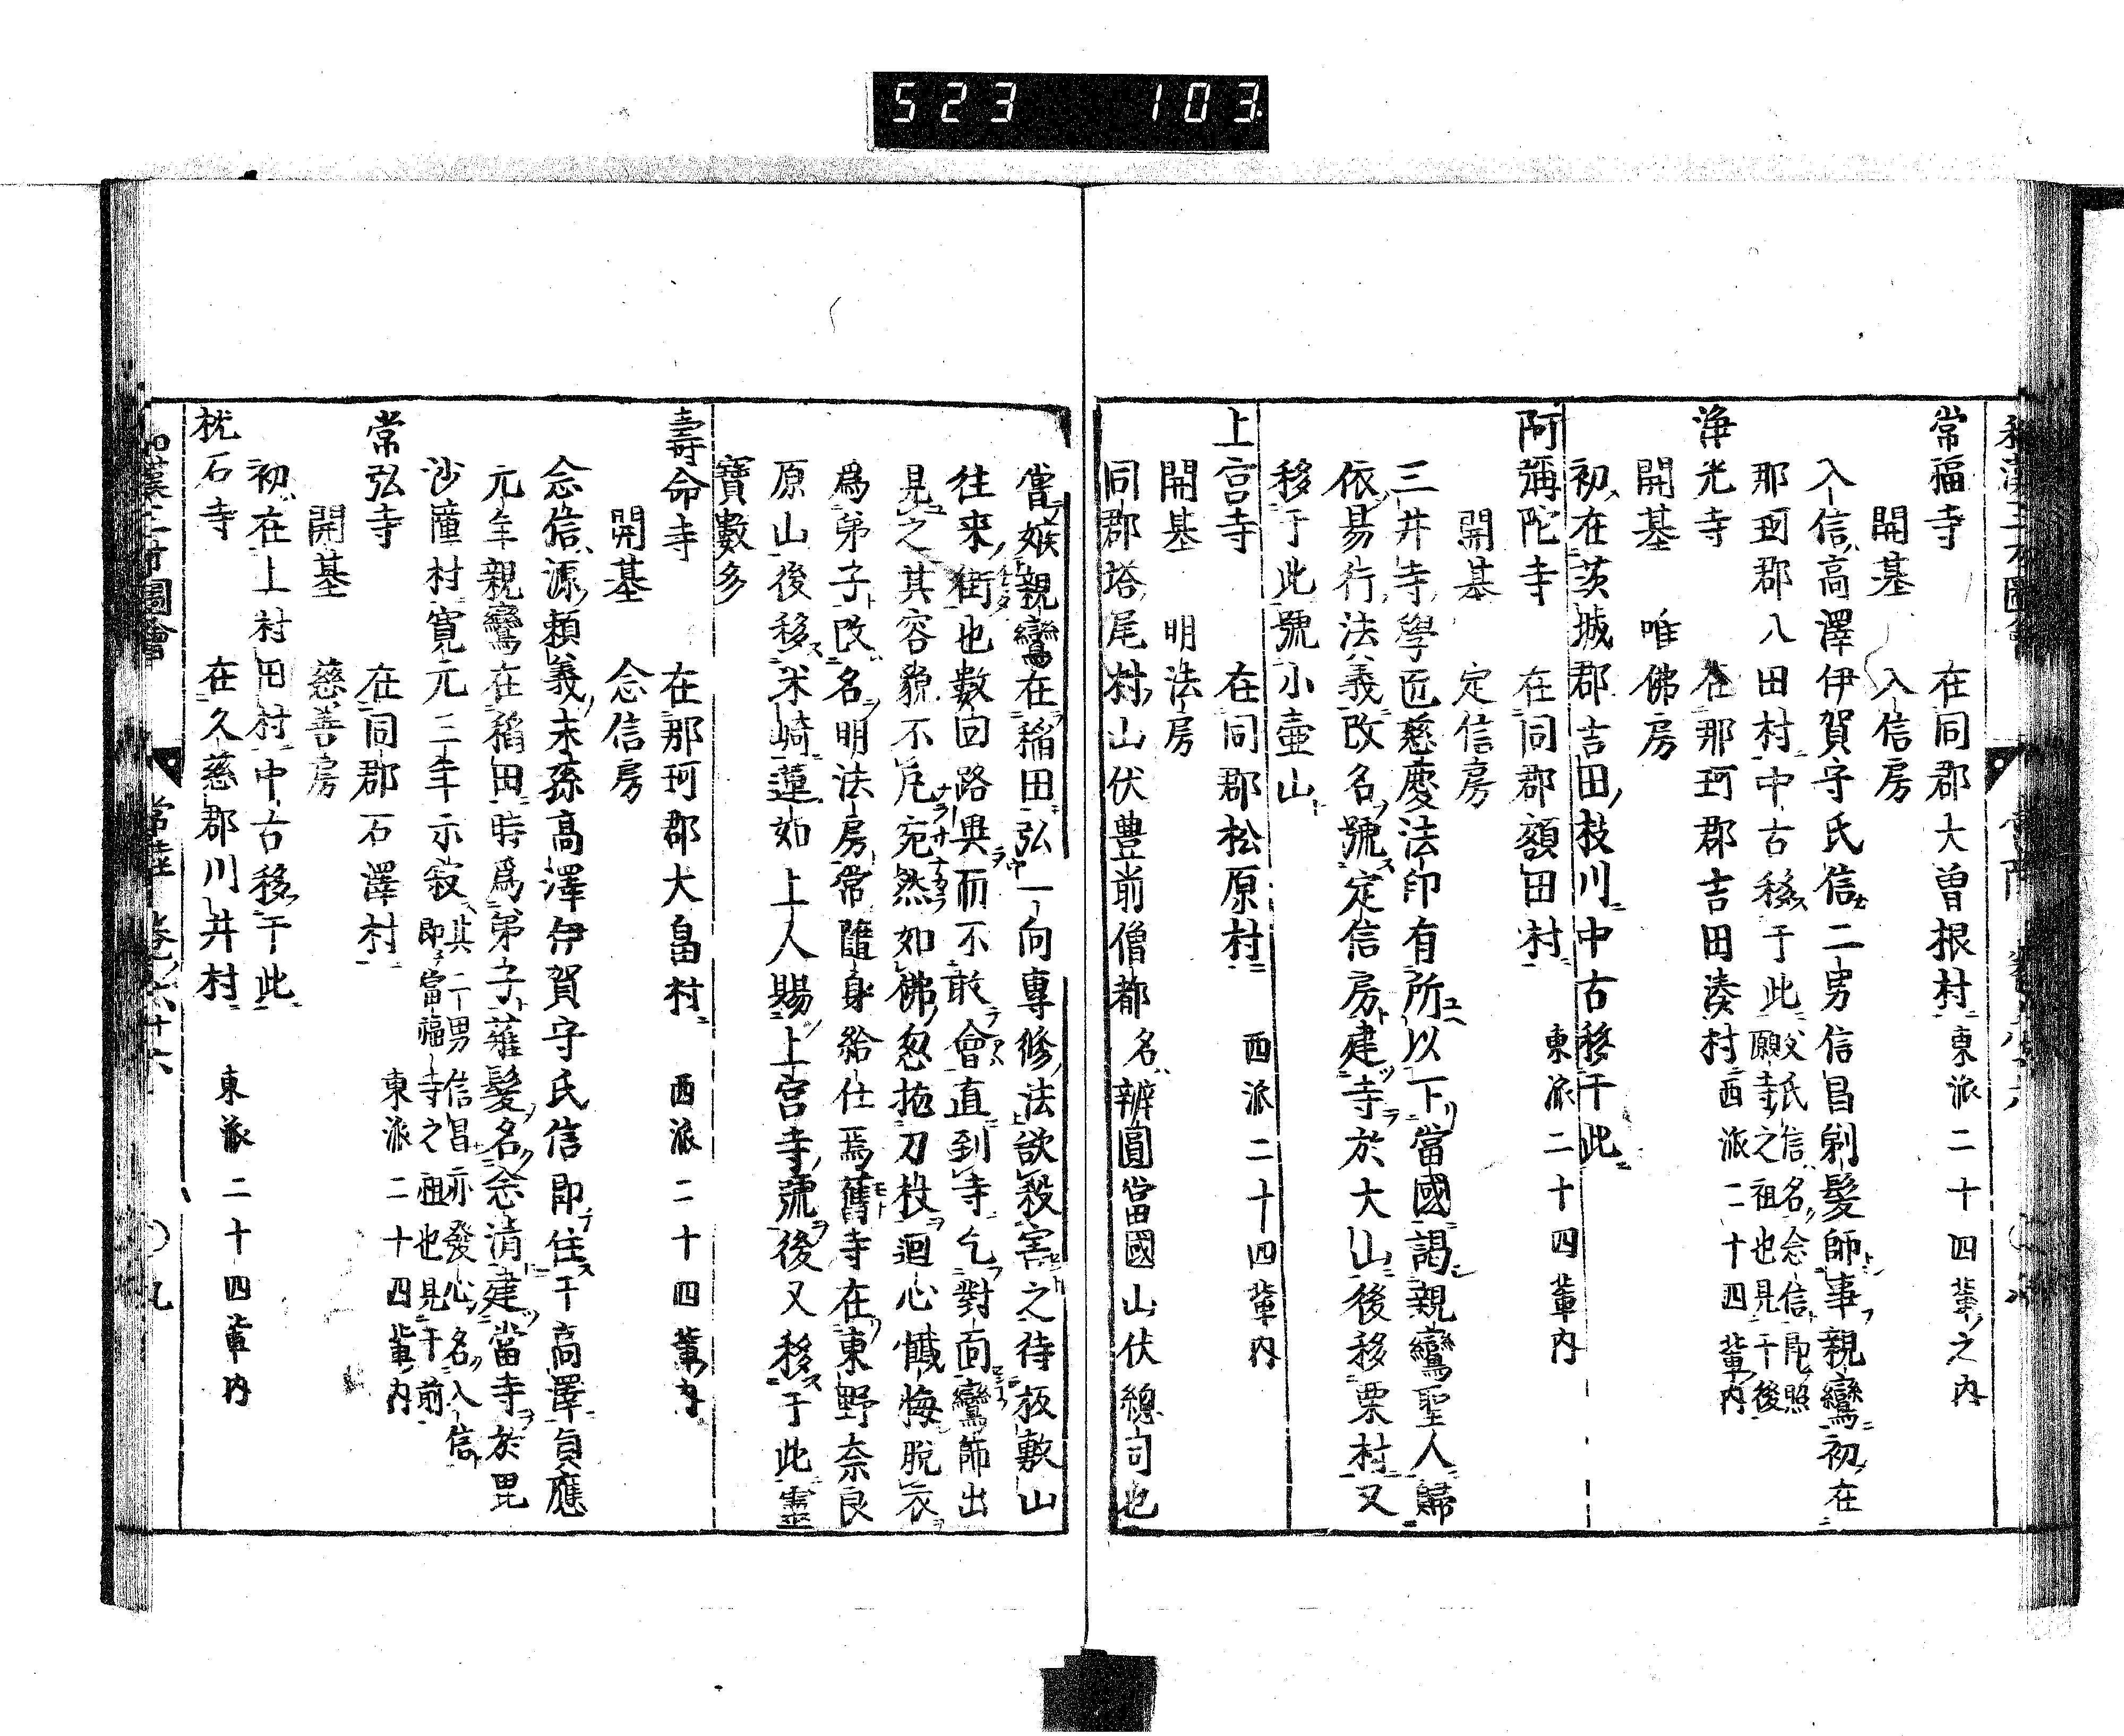 523 103
常福寺 在同郡大曽根村 東派二十四輩之内
開基 入信房
入信高澤伊賀守氏信二男信昌剃髪師事親鸞初在
那珂郡八田村中古移于此 父氏信名念信即照
願寺之祖也見于後
淨光寺 在那珂郡吉田湊村 西派二十四輩内
開基 唯佛房
初在茨城郡吉田枝川中古移于此
阿彌陀寺 在同郡額田村 東派二十四輩内
開基 定信房
三井寺學匠慈慶法印有所以下當國謁親鸞聖人歸
依易行法義改名號定信房建寺於大山後移粟村又
移于此號小壷山
上宮寺 在同郡松原村 西派二十四輩内
開基 明法房
同郡塔尾村山伏豊前僧都名辨圓當國山伏總司也
嘗嫉親鸞在稲田弘一向專修法欲殺害之待板敷山
往來衢也數回路異而不敢會直到寺乞對面鸞師出
見之其容貌不凡宛然如佛忽抛刀杖迴心懺悔脱衣
爲弟子改名明法房常隨身給仕焉舊寺在東野奈良
原山後移米﨑蓮如上人賜上宮寺號後又移于此靈
寶數多
壽命寺 在那珂郡大畠村 西派二十四輩内
開基 念信房
念信源頼義末孫高澤伊賀守氏信即住于高澤貞應
元年親鸞在稲田時爲弟子薙髮名念清建當寺於毘
沙瞳村寛元三年示寂 其二男信昌亦發心名入信
即當福寺之祖也見于前
常弘寺 在同郡石澤村 東派二十四輩内
開基 慈善房
初在上村田村中古移于此
枕石寺 在久慈郡川井村 東派二十四輩内
和漢三才圖會 常陸 巻六十六 ○九